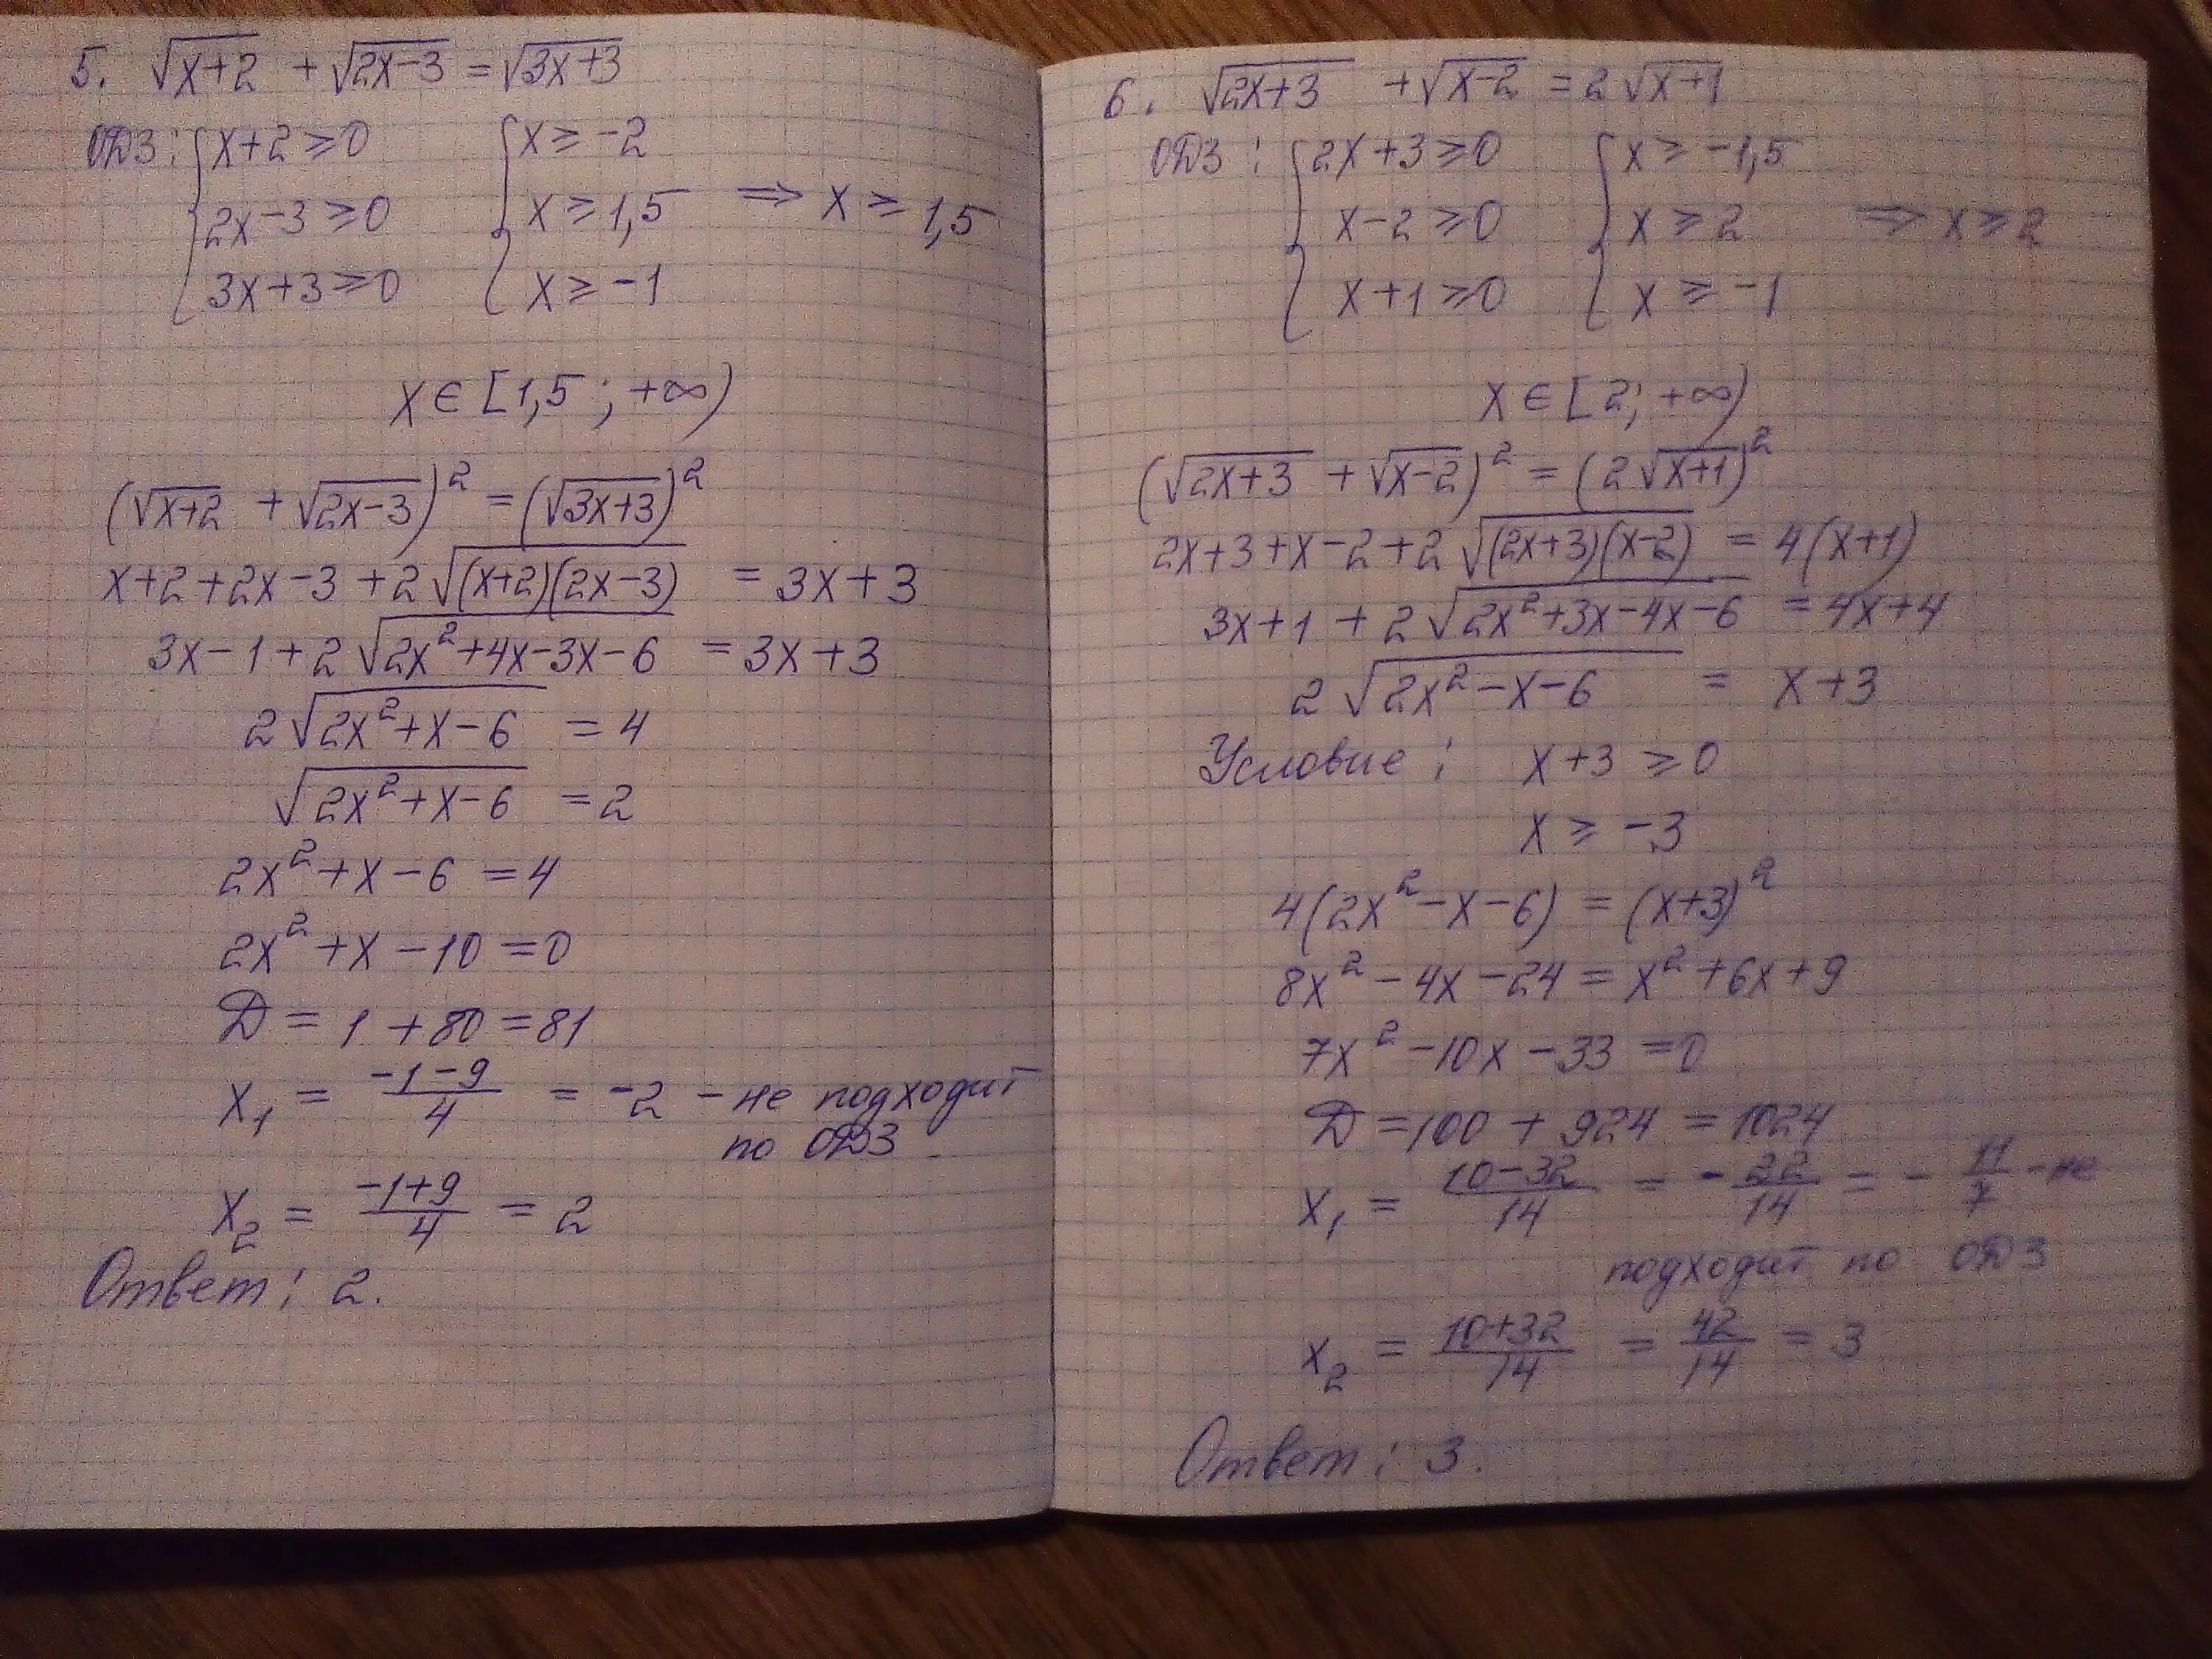 5. √(x+2) + √(2x-3) = √(3x+3)
ОДЗ: { x+2 ≥ 0 { x ≥ -2
2x-3 ≥ 0 x ≥ 1,5 ⇒ x ≥ 1,5
3x+3 ≥ 0 x ≥ -1
x ∈ [1,5; +∞)
(√(x+2) + √(2x-3))² = (√(3x+3))²
x+2+2x-3+2√((x+2)(2x-3)) = 3x+3
3x-1+2√(2x²+4x-3x-6) = 3x+3
2√(2x²+x-6) = 4
√(2x²+x-6) = 2
2x²+x-6 = 4
2x²+x-10 = 0
D = 1+80 = 81
x₁ = (-1-9)/4 = -2 - не подходит
по ОДЗ.
x₂ = (-1+9)/4 = 2
Ответ: 2.
6. √(2x+3) + √(x-2) = 2√(x+1)
ОДЗ: { 2x+3 ≥ 0 { x ≥ -1,5
x-2 ≥ 0 x ≥ 2 ⇒ x ≥ 2
x+1 ≥ 0 x ≥ -1
x ∈ [2; +∞)
(√(2x+3) + √(x-2))² = (2√(x+1))²
2x+3+x-2+2√((2x+3)(x-2)) = 4(x+1)
3x+1+2√(2x²+3x-4x-6) = 4x+4
2√(2x²-x-6) = x+3
Условие: x+3 ≥ 0
x ≥ -3
4(2x²-x-6) = (x+3)²
8x²-4x-24 = x²+6x+9
7x²-10x-33 = 0
D = 100+924 = 1024
x₁ = (10-32)/14 = -22/14 = -11/7 - не
подходит по ОДЗ
x₂ = (10+32)/14 = 42/14 = 3
Ответ: 3.